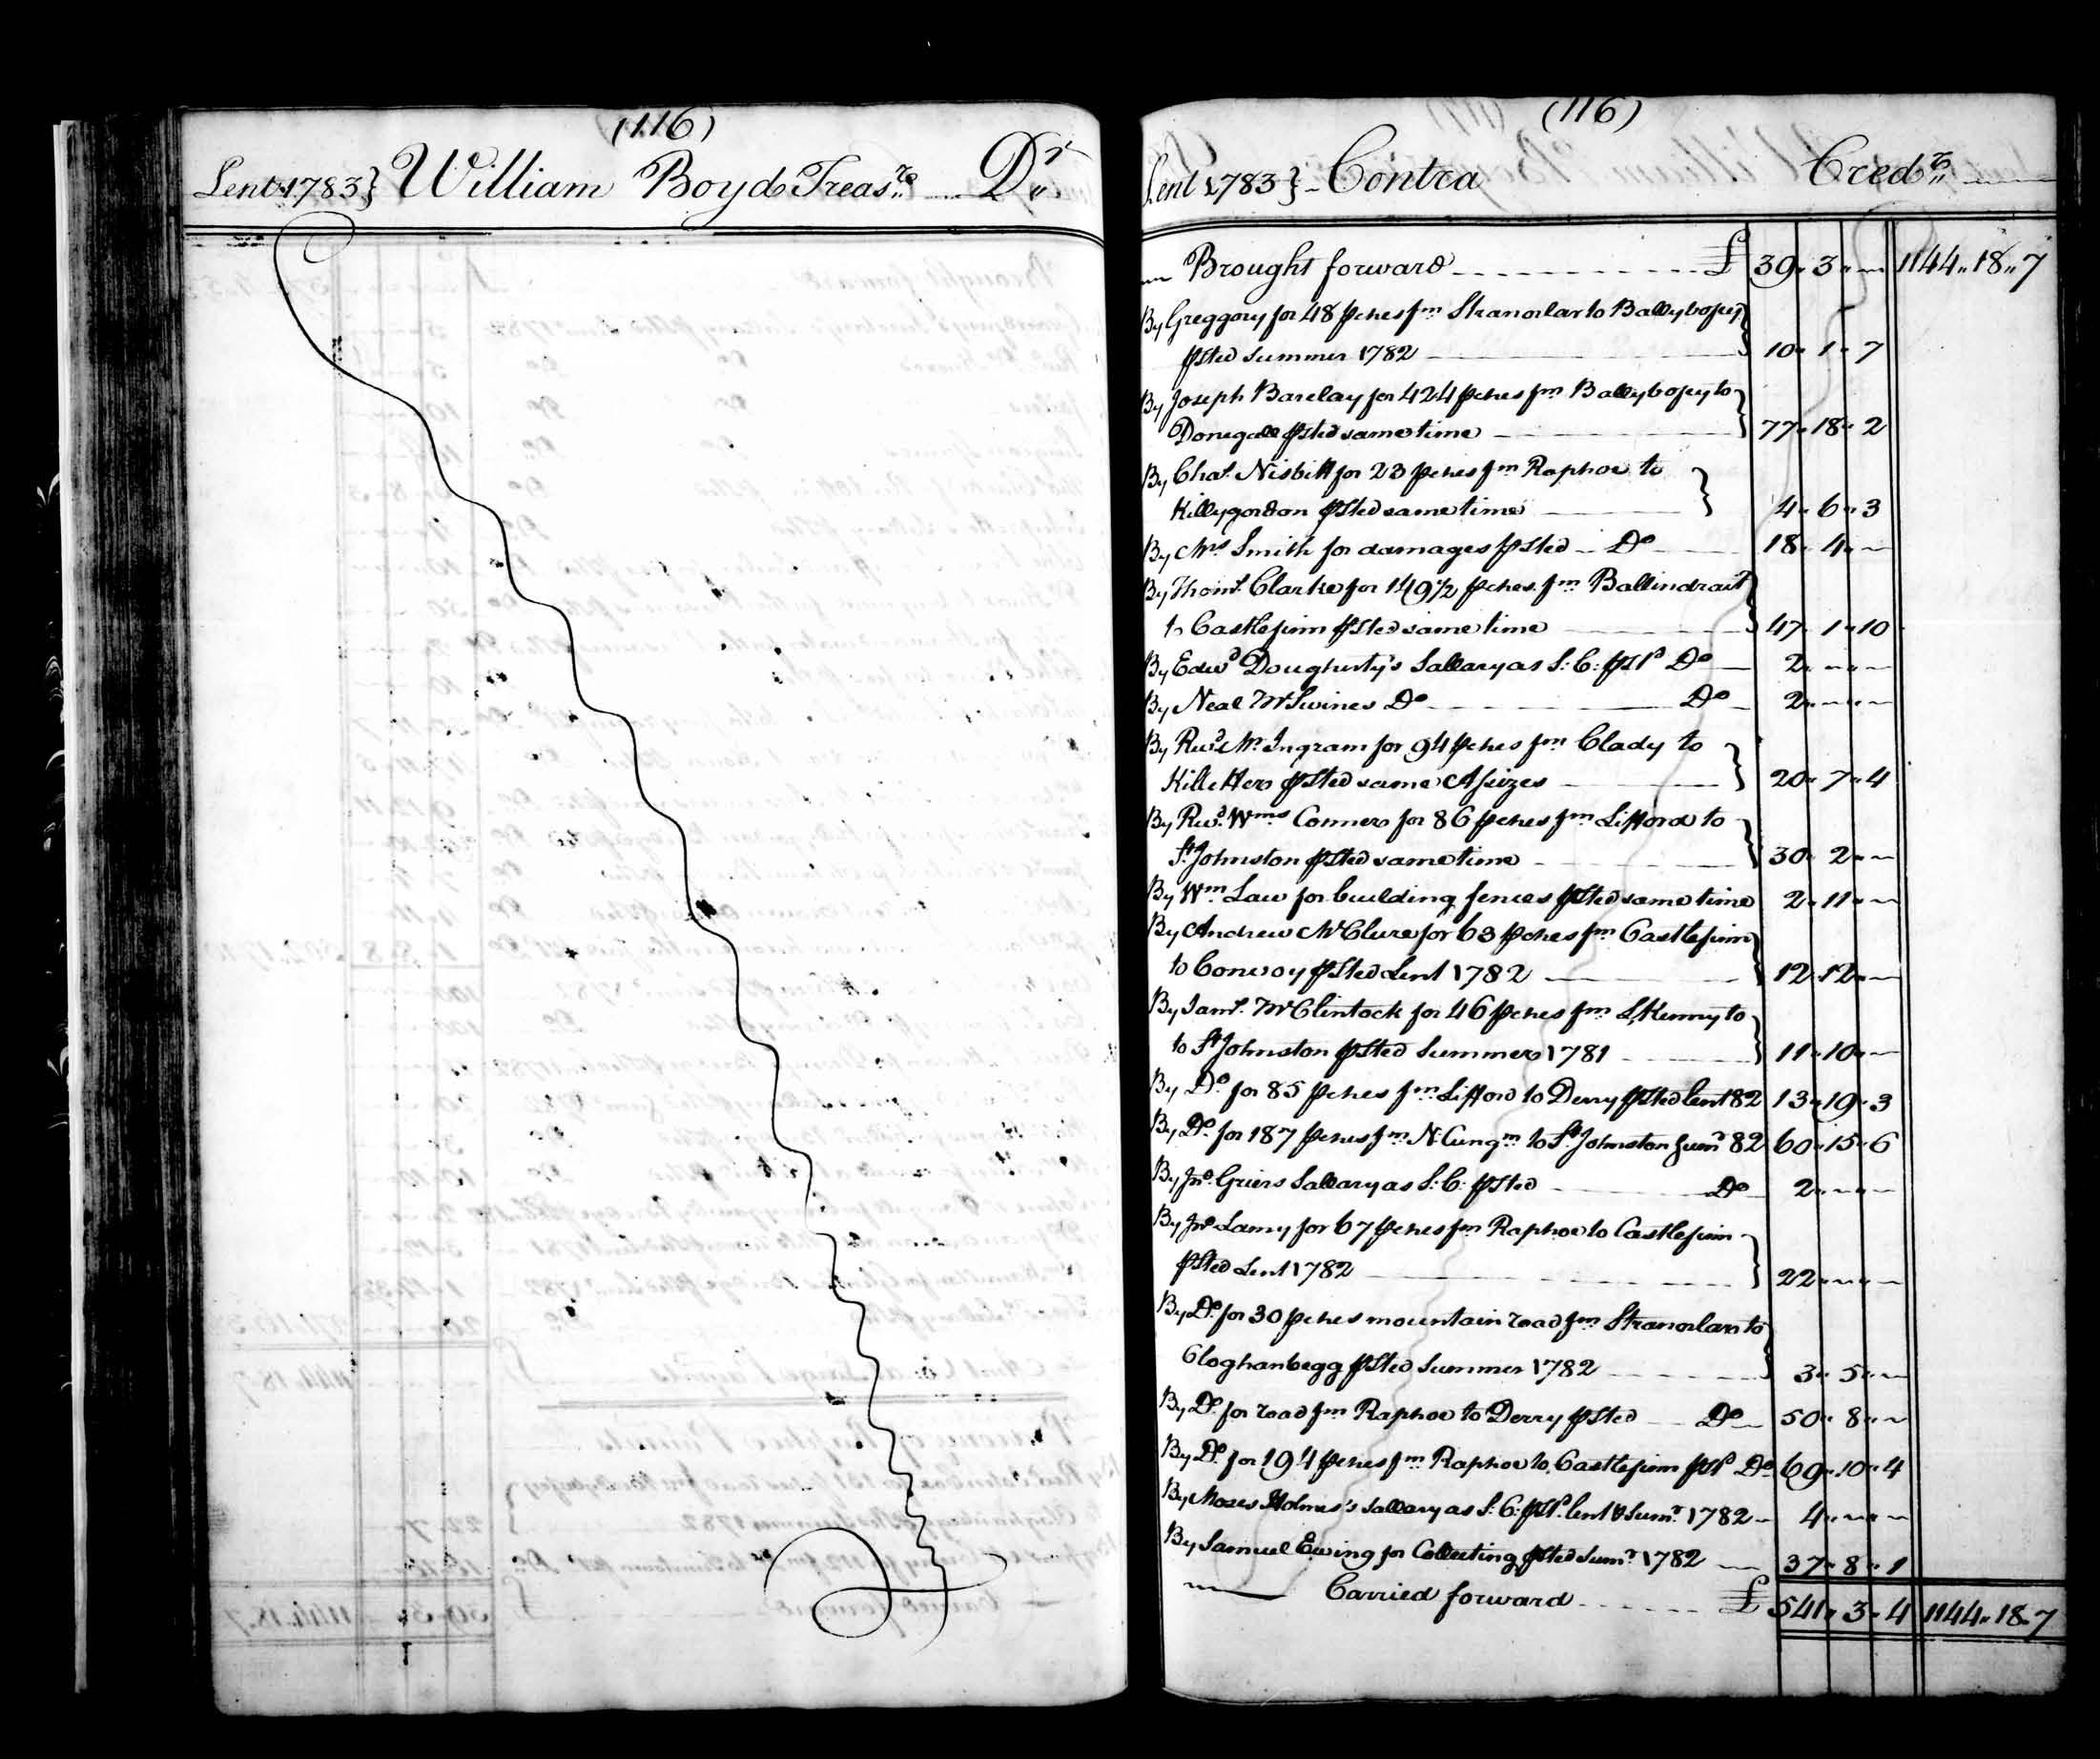 (116)
Lent 1783} William Boyd Treasr. Dr.
(116)
Lent 1783} Contra Credr.
Brought forward £ 39 " 3 " — 1144 " 18 " 7
By Greggory for 48 pches fm Stranorlar to Ballybofey
psted Summer 1782 10 " 1 " 7
By Joseph Barclay for 424 pches fm Ballybofey to
Donegall psted same time 77 " 18 " 2
By Chas. Nisbitt for 23 pches fm Raphoe to
Killygordon psted same time 4 " 6 " 3
By Mrs Smith for damages psted Do 18 " 4 " —
By Thoms. Clarke for 149 1/2 pches fm Ballindrait
to Castlefinn psted same time 47 " 1 " 10
By Edwd Dougherty's Sallary as S: C: pstd Do 2 " — " —
By Neal McSwines Do Do 2 " — " —
By Revd. Mr Ingram for 94 pches fm Clady to
Killetter psted same Assizes 20 " 7 " 4
By Revd. Wms Conner for 86 pches fm Lifford to
St. Johnston psted same time 30 " 2 " —
By Wm Law for building fences psted same time 2 " 11 " —
By Andrew McClure for 63 pches fm Castlefinn
to Convoy psted Lent 1782 12 " 12 " —
By Saml. McClintock for 46 pches fm LKenny to
to St Johnston psted Summer 1781 11 " 10 " —
By Do. for 85 pches fm Lifford to Derry psted lent 82 13 " 19 " 3
By Do. for 187 pches fm N: Cungm to St. Johnston Sumr 82 60 " 15 " 6
By Jno. Griers Sallary as S: C: psted Do 2 " — " —
By Jno Lamy for 67 pches fm Raphoe to Castlefinn
psted Lent 1782 22 " — " —
By Do. for 30 pches mountain road fm Stranorlar to
Cloghanbegg psted Summer 1782 3 " 5 " —
By Do. for road fm Raphoe to Derry psted Do 50 " 8 " —
By Do. for 194 pches fm Raphoe to Castlefinn pstd Do 69 " 10 " 4
By Moses Holmes's sallary as S: C: pstd. lent & Sumr. 1782 4 " — " —
By Samuel Ewing for Collecting psted Sumr 1782 37 " 8 " 1
Carried forward £ 541 " 3 " 4 1144 " 18 " 7